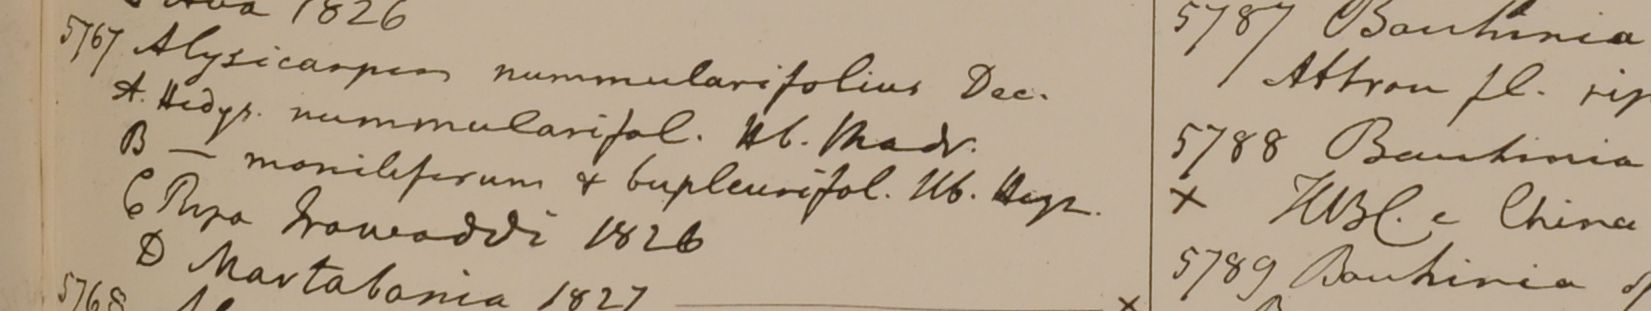 Ava 1826
5767 Alysicarpus nummularifolius Dec.
A. Hedys. nummularifol. Hb. Madr.
B — moniliferum & bupleurifol. Hb. Heyn.
C Ripa Irawaddi 1826
D Martabania 1827
5768
5787 Bauhinia
Attran fl. rip
5788 Bauhinia
× HBC. e China
5789 Bauhinia
×